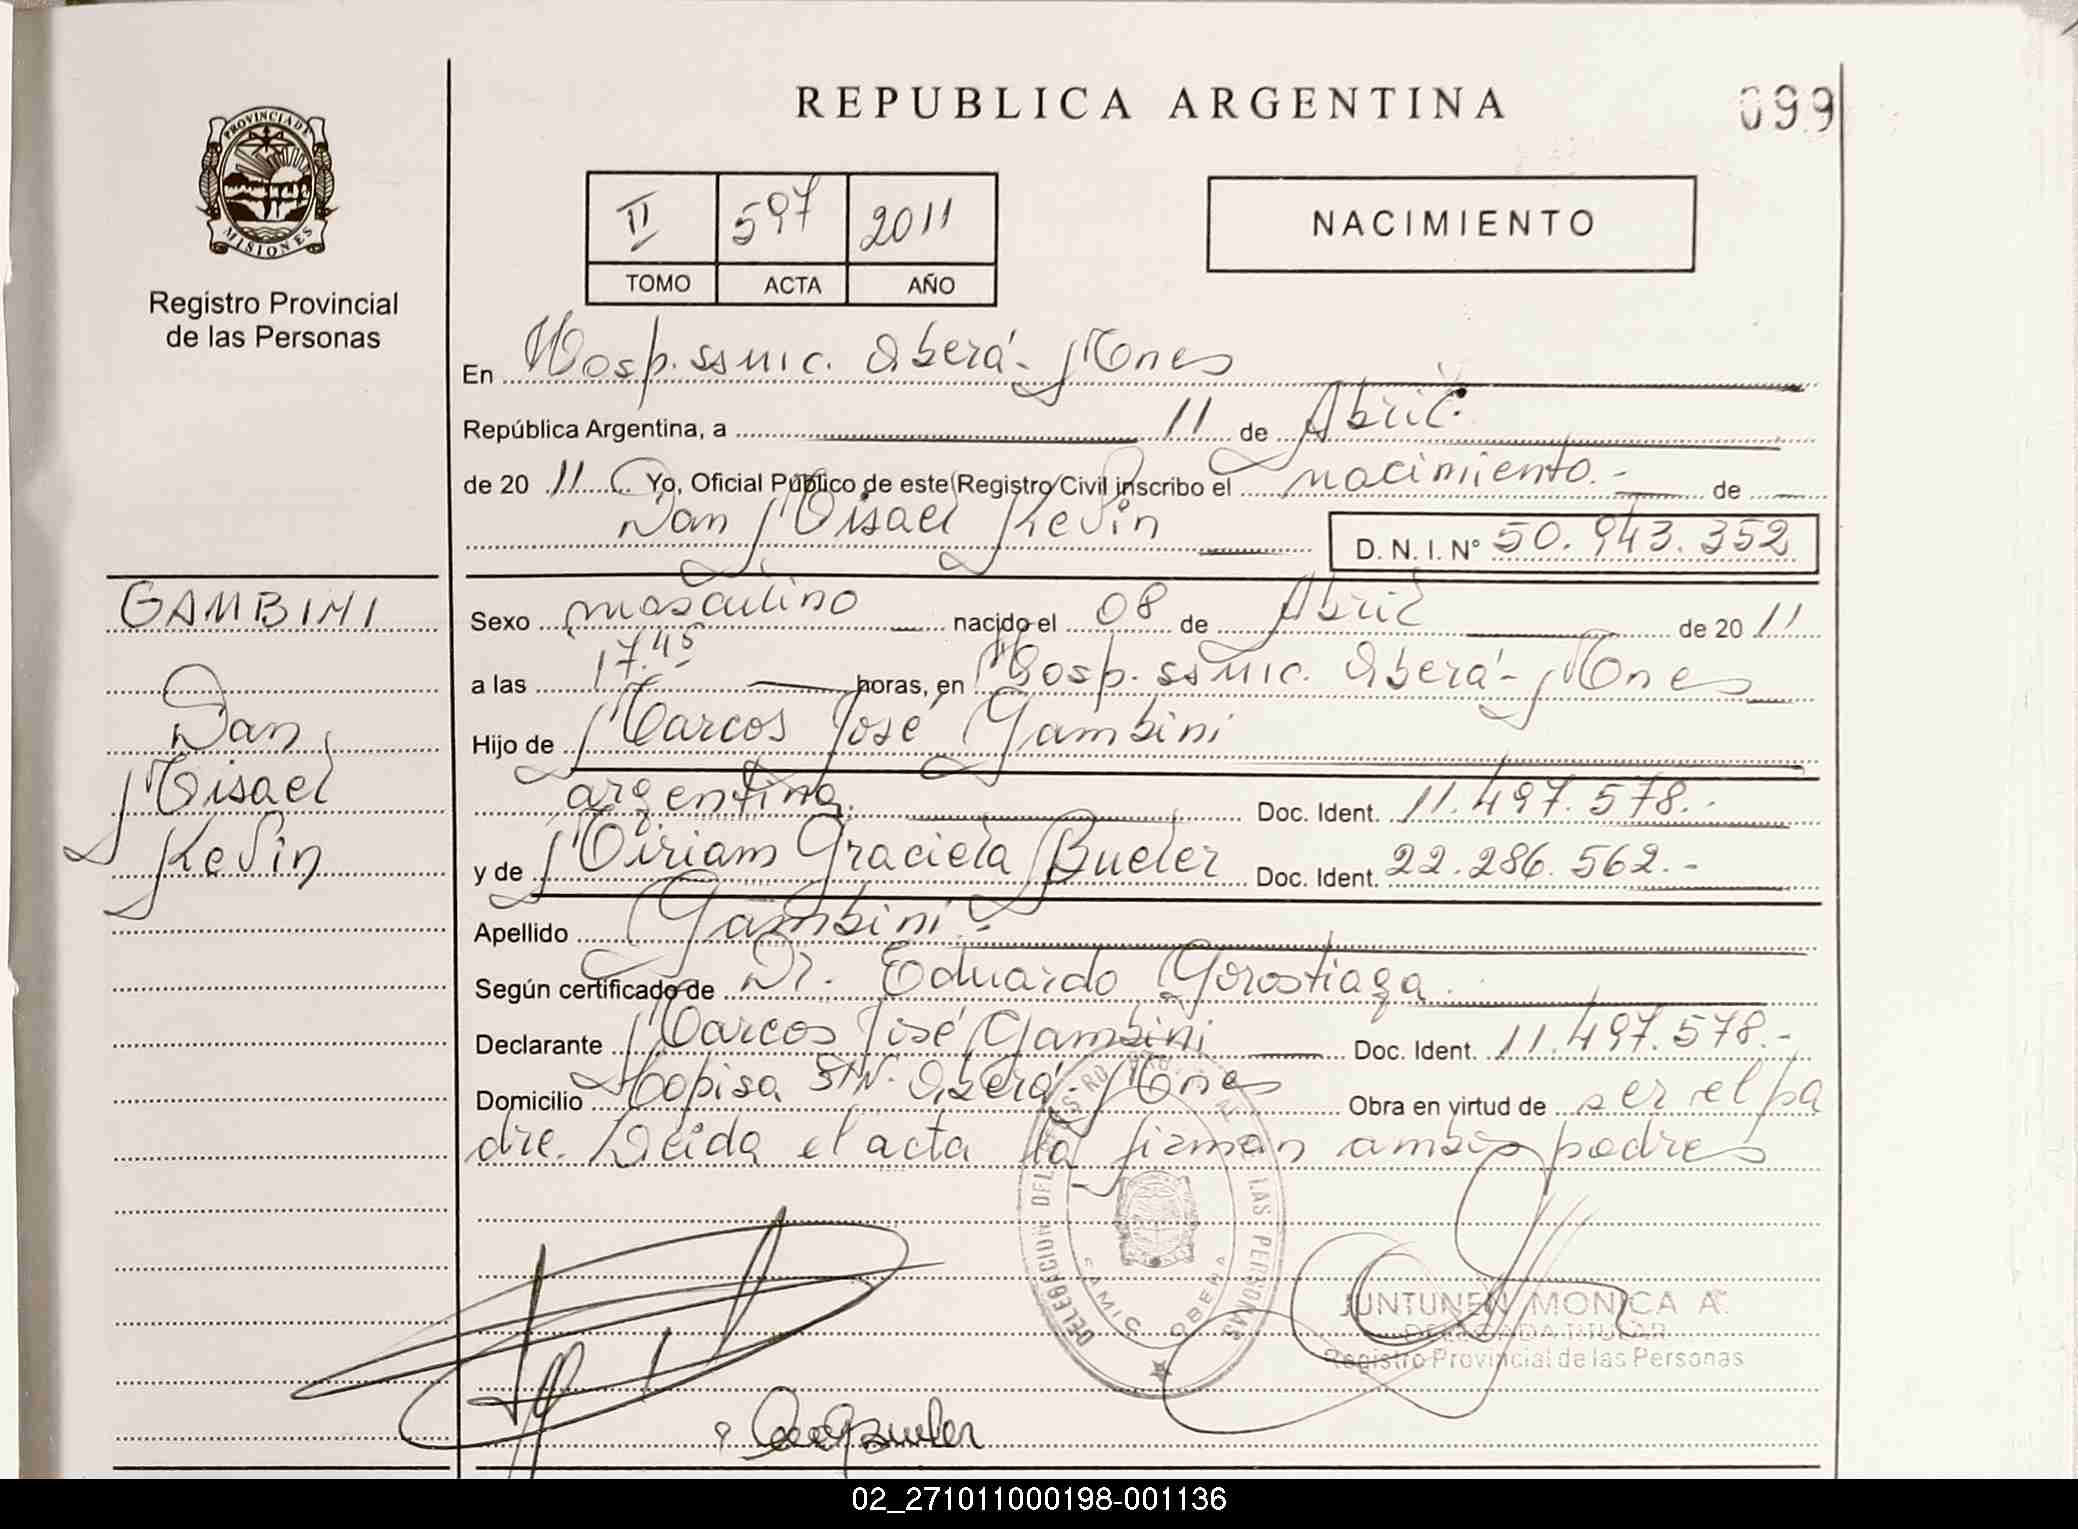 REPUBLICA ARGENTINA
099
PROVINCIA DE
MISIONES
Registro Provincial
de las Personas
II 597 2011
TOMO ACTA AÑO
NACIMIENTO
En Hosp. SSMIC. Oberá - Mnes
República Argentina, a 11 de Abril
de 20 11 Yo, Oficial Público de este Registro Civil inscribo el nacimiento.- de
Dan Misael Kevin D. N. I. Nº 50.943.352
GAMBINI
Dan
Misael
Kevin
Sexo masculino nacido el 08 de Abril de 20 11
a las 17.45 horas, en Hosp. SSMIC. Oberá - Mnes
Hijo de Marcos José Gambini
argentina. Doc. Ident. 11.497.578.-
y de Miriam Graciela Bueler Doc. Ident. 22.286.562.-
Apellido Gambini.-
Según certificado de Dr. Eduardo Gorostiaga.
Declarante Marcos José Gambini Doc. Ident. 11.497.578.-
Domicilio S/Nº. Oberá - Mnes Obra en virtud de ser el pa
dre. Leída el acta la firman ambos padres
DELEGACION DEL REGISTRO PROV. DE LAS PERSONAS
SAMIC OBERA
JUNTUNEN MONICA A.
DELEGADA TITULAR
Registro Provincial de las Personas
02_271011000198-001136